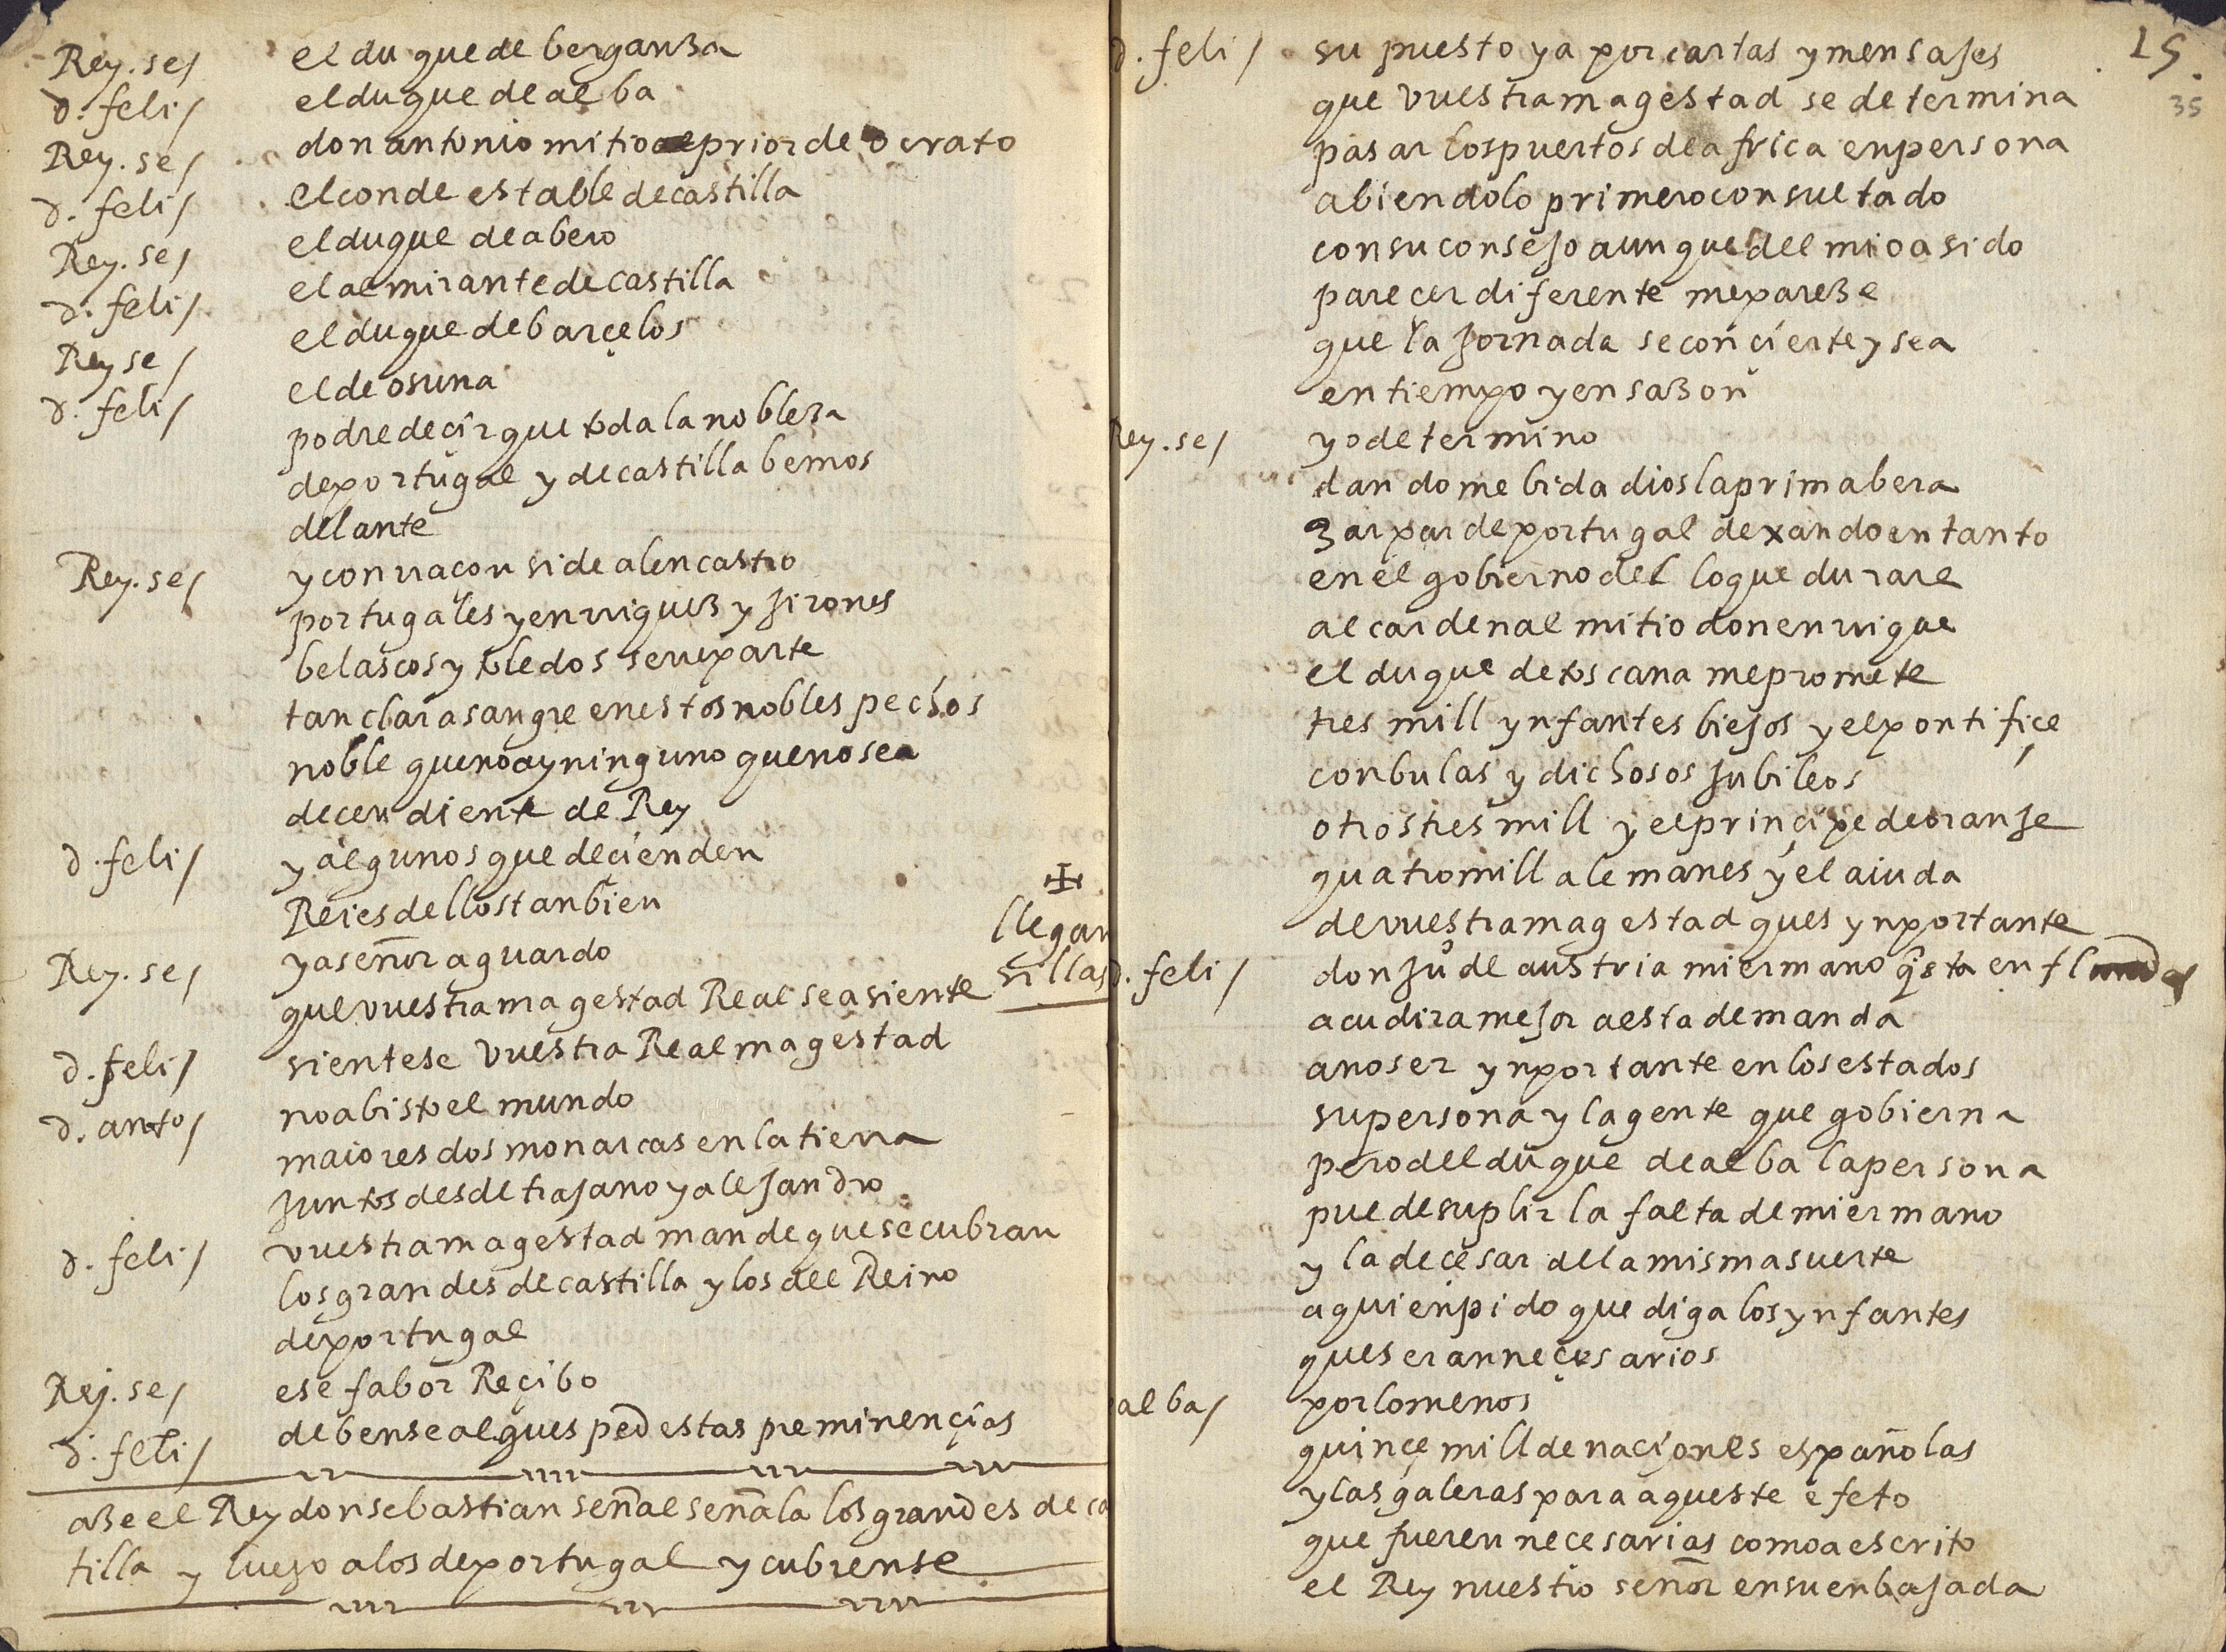 Rey. se/ el du que de berganza
d. feli/ el duque de alba
Rey. se/ don antonio mi tio el prior de ocrato
d. feli/ el conde estable de castilla
Rey. se/ el duque de abero
d. feli/ el almirante de castilla
Rey se/ el duque de barçelos
d. feli/ el de osuna
podre deçir que toda la nobleza
de portugal y de castilla bemos
delante
Rey. se/ y con rraçon si de alencastro
portugales y enrriquez y jirones
belascos y toledos se rreparte
tan clara sangre en estos nobles pechos
noble que no ay ninguno que no sea
decendiente de Rey
d. feli/ y algunos que deçienden
Reies dellos tanbien
Rey. se/ ya señor aguardo
que vuestra magestad Real se asiente
llegan
sillas
d. feli/ sientese vuestra Real magestad
d. anto/ no a bisto el mundo
maiores dos monarcas en la tierra
juntos desde trajano y alejandro
d. feli/ vuestra magestad mande que se cubran
los grandes de castilla y los del Reino
de portugal
Rej. se/ ese fabor Reçibo
d. feli/ debense al quesped estas preminençias
aze el Rey don sebastian señal señala los grandes de ca
tilla y luego a los de portugal y cubrense
15
35
d. feli/ supuesto ya por cartas y mensajes
que vuestra magestad se determina
pasar los puertos de africa en persona
abiendolo primero consultado
con su consejo aunque del mio a sido
parecer diferente me pareze
que la jornada se conçierte y sea
en tiempo y en sazon
Rey. se/ yo determino
dandome bida dios la primabera
zarpar de portugal dexando en tanto
en el gobierno del lo que durare
al cardenal mi tio don enrrique
el duque de toscana me promete
tres mill ynfantes biejos y el pontifiçe
con bulas y dichosos jubileos
otros tres mill y el prinçipe de oranje
quatro mill alemanes y el aiuda
de vuestra magestad ques ynportante
d. feli/ don ju° de austria mi ermano questa en flandes
acudira mejor a esta demanda
a no ser ynportante en los estados
su persona y la gente que gobierna
pero del duque de alba la persona
puede suplir la falta de mi ermano
y la de çesar de la misma suerte
a quien pido que diga los ynfantes
que seran neçesarios
alba/ por lo menos
quinçe mill de naçiones españolas
y las galeras para aqueste efeto
que fueren necesarias como a escrito
el Rey nuestro señor en su enbajada